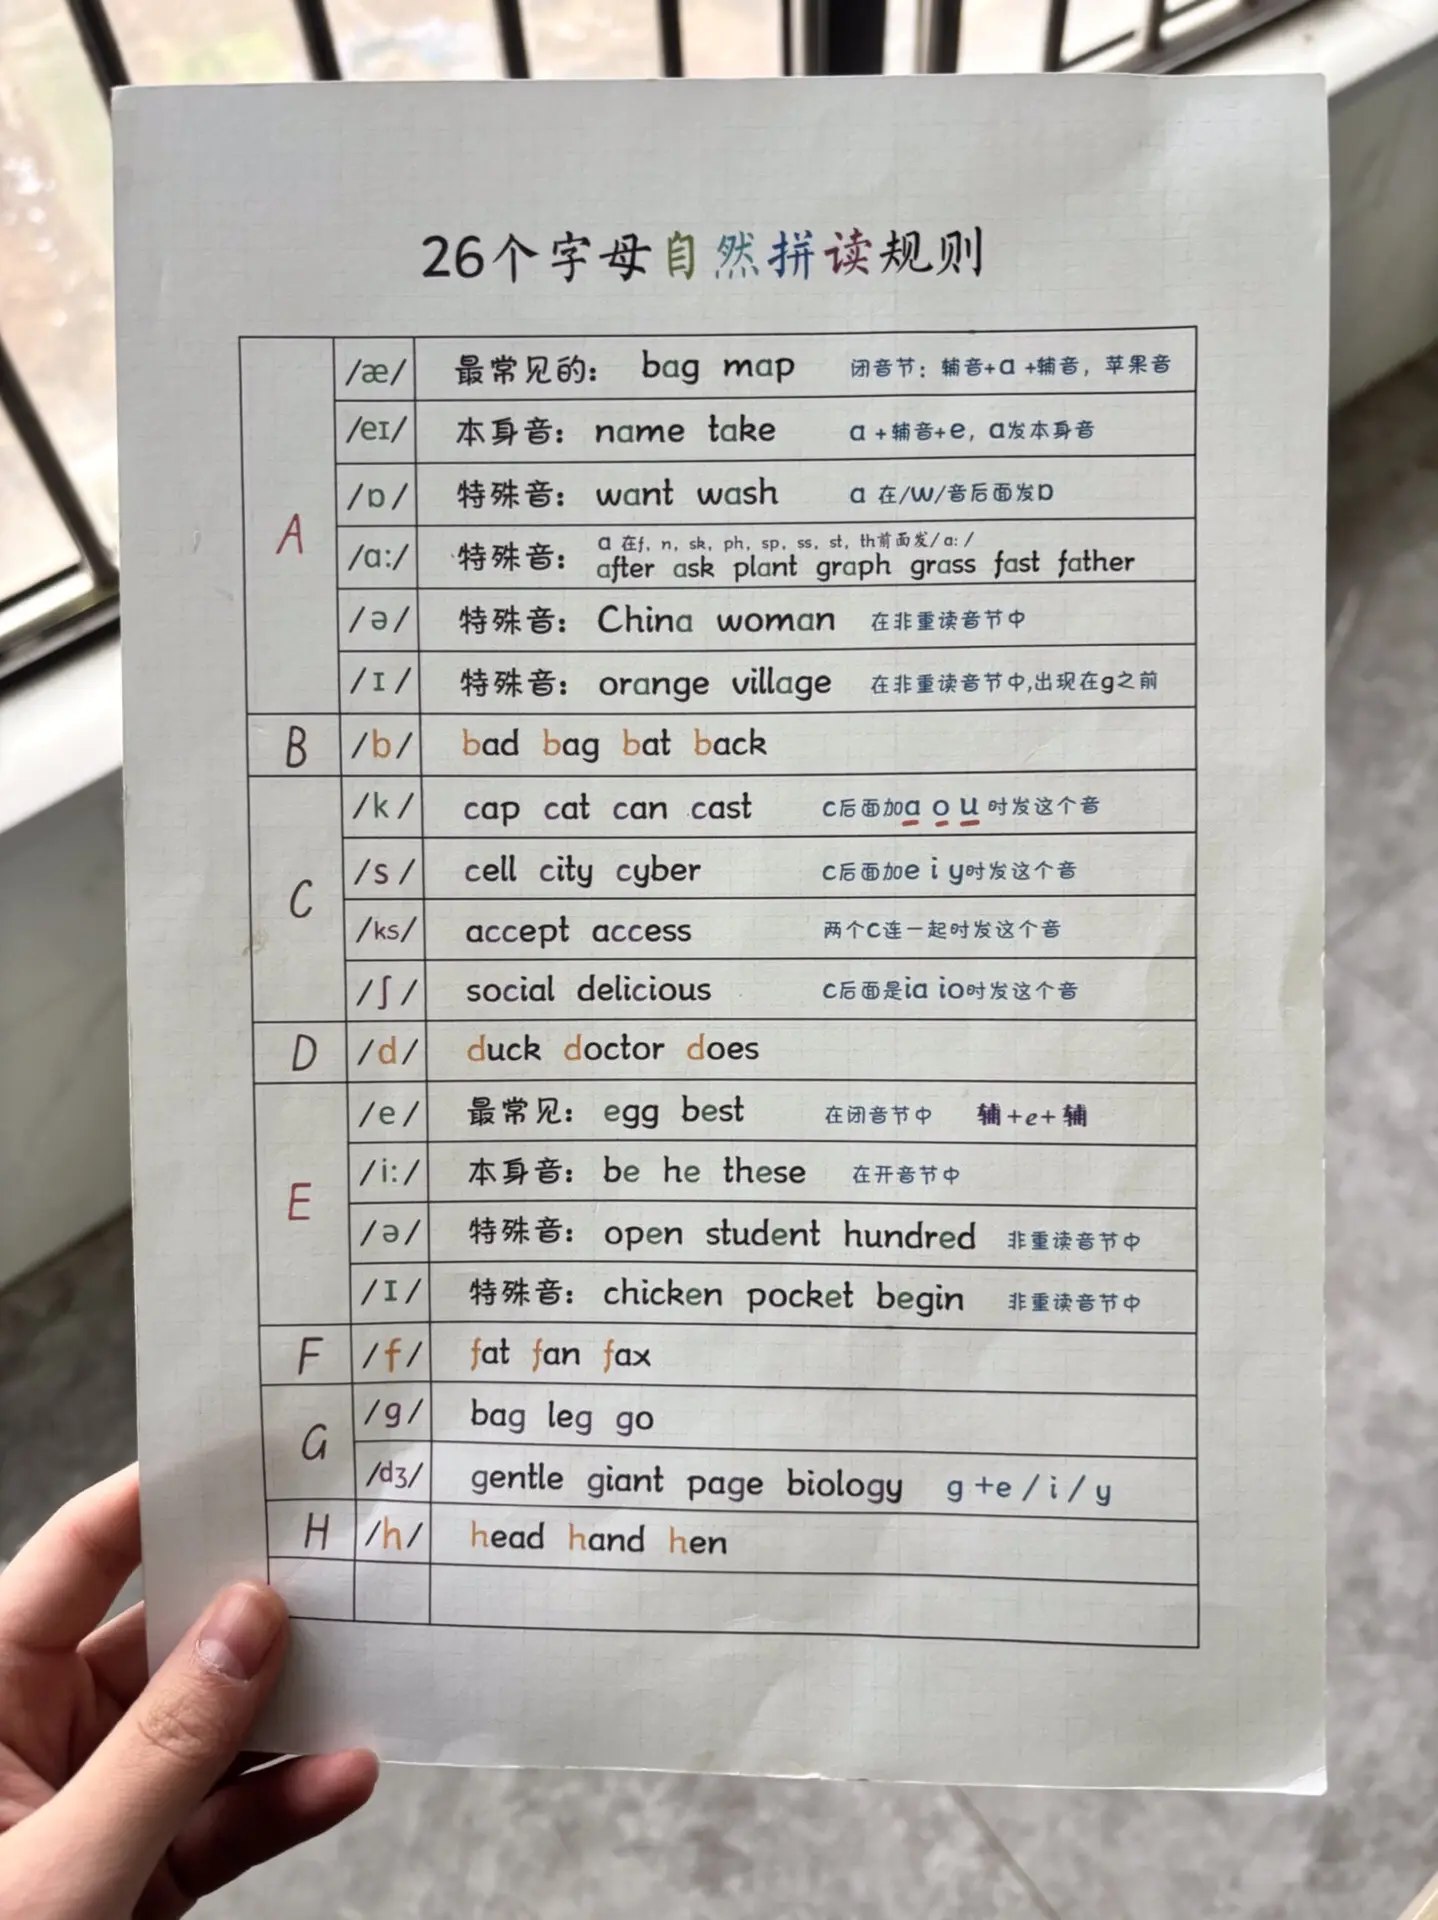 26个字母自然拼读规则
A
/æ/ 最常见的： bag map 闭音节：辅音+a +辅音，苹果音
/eɪ/ 本身音： name take a +辅音+e，a发本身音
/ɒ/ 特殊音： want wash a 在/w/音后面发ɒ
/ɑ:/ 特殊音： a 在f，n，sk，ph，sp，ss，st，th前面发/ɑ: /
after ask plant graph grass fast father
/ə/ 特殊音： China woman 在非重读音节中
/ɪ/ 特殊音： orange village 在非重读音节中,出现在g之前
B /b/ bad bag bat back
C
/k/ cap cat can cast c后面加a o u 时发这个音
/s/ cell city cyber c后面加e i y时发这个音
/ks/ accept access 两个c连一起时发这个音
/ʃ/ social delicious c后面是ia io时发这个音
D /d/ duck doctor does
E
/e/ 最常见： egg best 在闭音节中 辅+e+辅
/i:/ 本身音： be he these 在开音节中
/ə/ 特殊音： open student hundred 非重读音节中
/ɪ/ 特殊音： chicken pocket begin 非重读音节中
F /f/ fat fan fax
G
/g/ bag leg go
/dʒ/ gentle giant page biology g +e / i / y
H /h/ head hand hen